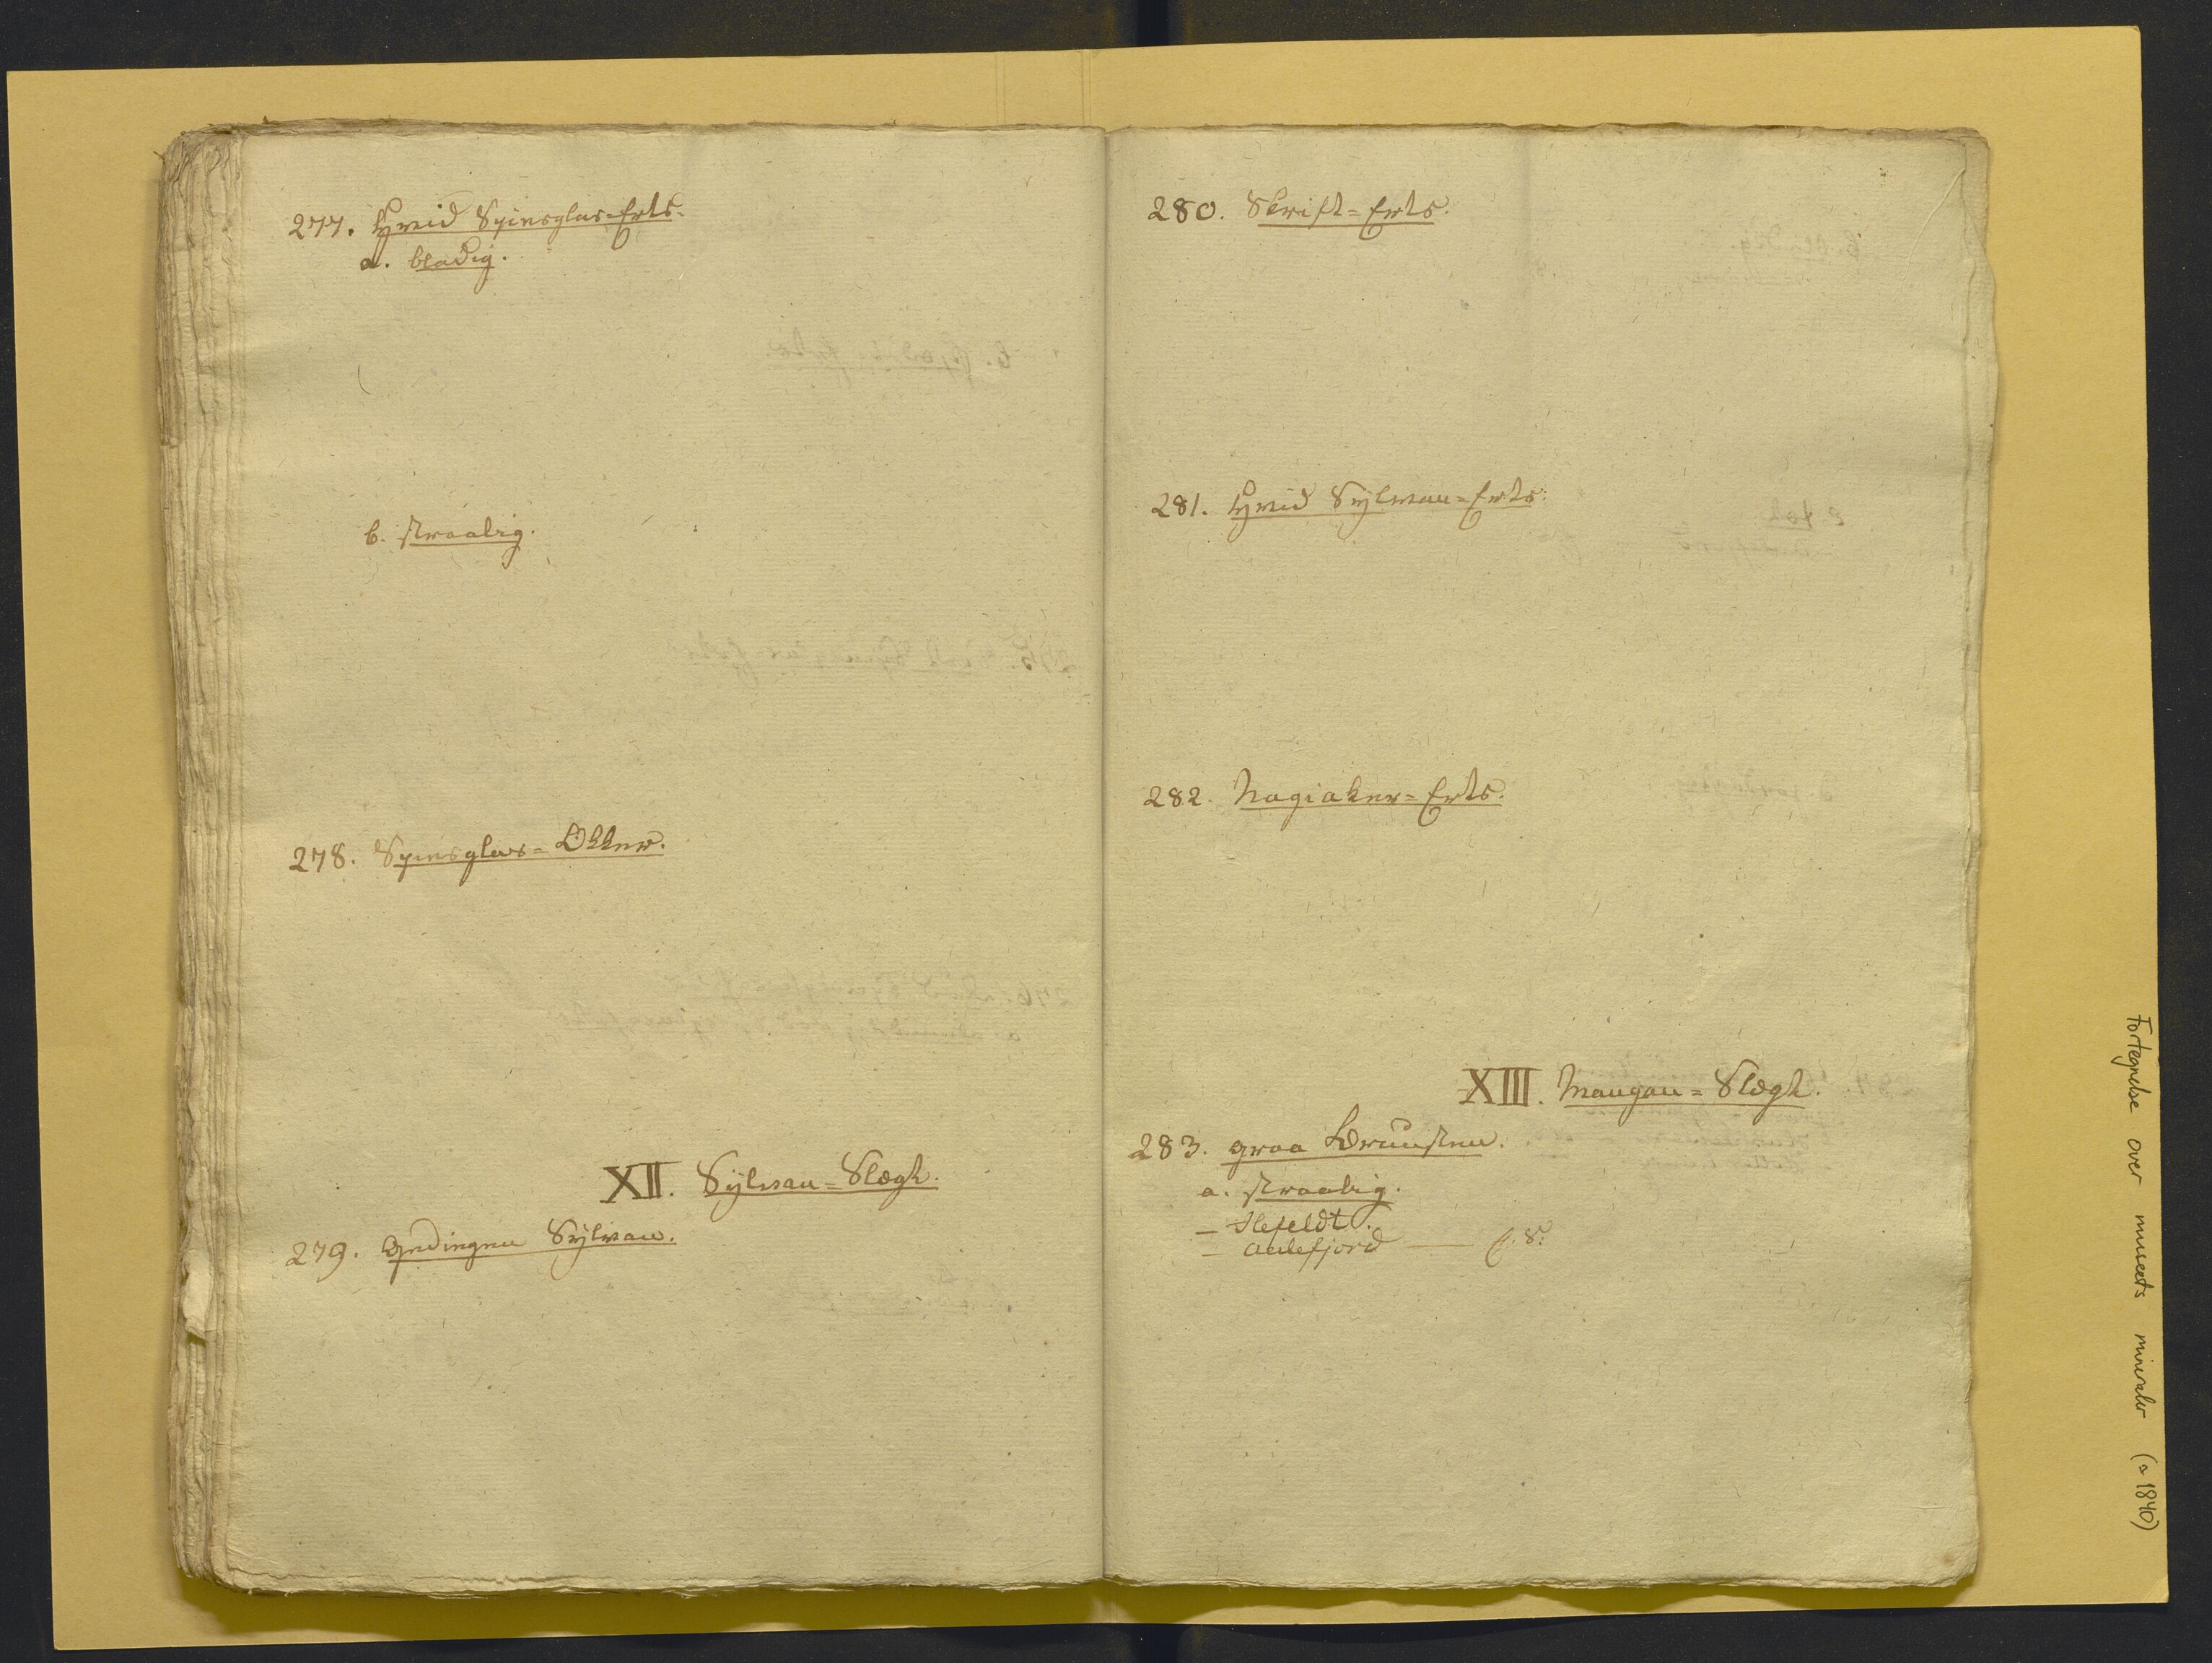 277. Hvid Spiesglas=Erts.
a. bladig.
b. straalig.
278. Spiesglas=Okker.
XII. Sylvan=Slægt.
279. Gediegen Sylvan.
280. Skrift=Erts.
281. Hvid Sylvan=Erts.
282. Nagiaker=Erts.
XIII. Mangan=Slægt.
283. graa Brunsten.
a. straalig.
— Ilefeldt.
— Aalefjord —
Fortegnelse over museets mineraler (~1840)